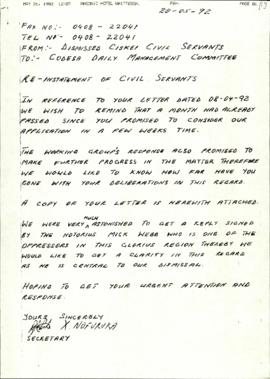 20-05-92
FAX NO:- 0408-22041
TEL NO:- 0408-22041
FROM:- DISMISSED CISKEI CIVIL SERVANTS
TO:- CODESA DAILY MANAGEMENT COMMITTEE
RE-INSTATEMENT OF CIVIL SERVANTS
IN REFERENCE TO YOUR LETTER DATED 08-04-92
WE WISH TO REMIND THAT A MONTH HAD ALREADY
PASSED SINCE YOU PROMISED TO CONSIDER OUR
APPLICATION IN A FEW WEEKS TIME.
THE WORKING GROUP'S RESPONSE ALSO PROMISED TO
MAKE FURTHER PROGRESS IN THE MATTER THEREFORE
WE WOULD LIKE TO KNOW HOW FAR HAVE YOU
GONE WITH YOUR DELIBERATIONS IN THIS REGARD.
A COPY OF YOUR LETTER IS HEREWITH ATTACHED.
WE WERE VERY MUCH ASTONISHED TO GET A REPLY SIGNED
BY THE NOTORIUS MICK WEBB WHO IS ONE OF THE
OPPRESSORS IN THIS GLORIUS REGION THEREBY WE
WOULD LIKE TO GET A CLARITY IN THIS REGARD
AS HE IS CENTRAL TO OUR DISMISSAL.
HOPING TO GET YOUR URGENT ATTENTION AND
RESPONSE.
YOURS SINCERELY
X NOFURUKA
SECRETARY